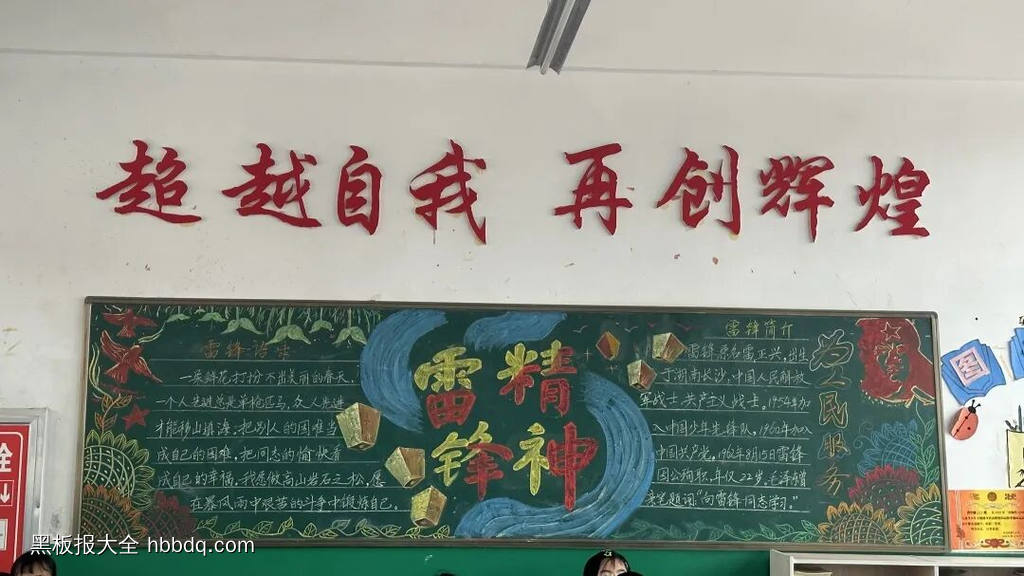 超越自我 再创辉煌
雷锋
精神
雷锋语录
一朵鲜花打扮不出美丽的春天,
一个人先进总是单枪匹马,众人先进
才能移山填海。把别人的困难当
成自己的困难,把同志的愉快看
成自己的幸福。我愿做高山岩石之松,
在暴风雨中艰苦的斗争中锻炼自己。
雷锋简介
雷锋 原名雷正兴,出生
于湖南长沙,中国人民解放
军战士,共产主义战士。1954年加
入中国少年先锋队,1960年加入
中国共产党。1962年8月15日雷锋
因公殉职,年仅22岁。毛泽东
题词“向雷锋同志学习”
为人民服务
图
栓
黑板报大全 hbbdq.com